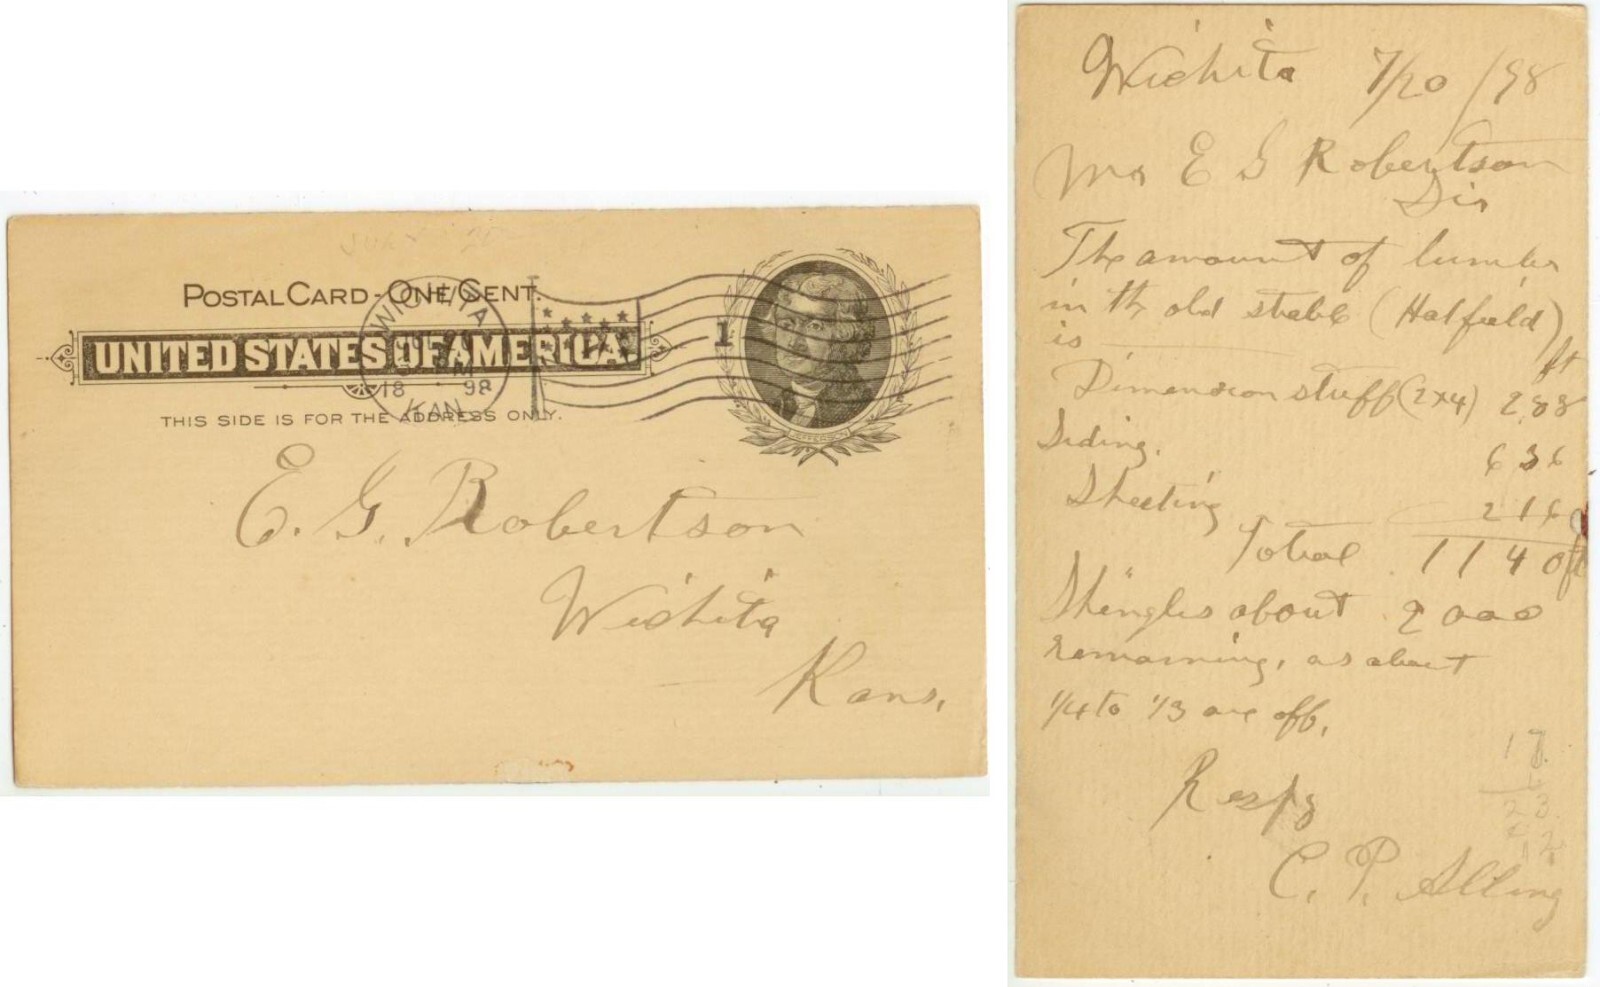 POSTAL CARD - ONE CENT.
UNITED STATES OF AMERICA.
THIS SIDE IS FOR THE ADDRESS ONLY.
WICHITA
18 98
KAN.
1
JEFFERSON
E. G. Robertson
Wichita
Kans.
Wichita 7/20/98
Mr E G Robertson
Sir
The amount of lumber
in th old stable (Hatfield)
is
ft
Dimension stuff (2x4) 288
Siding. 636
Sheeting 216
Total 1140 ft
Shingles about 2000
remaining, as about
1/4 to 1/3 are off.
Respy
C. P. Alling